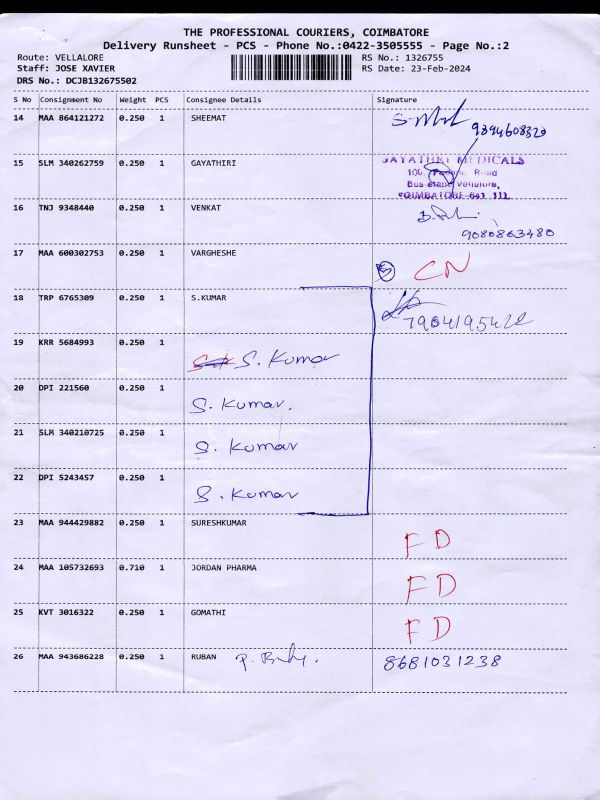 THE PROFESSIONAL COURIERS, COIMBATORE
Delivery Runsheet - PCS - Phone No.:0422-3505555 - Page No.:2
Route: VELLALORE
Staff: JOSE XAVIER
DRS No.: DCJB132675502
RS No.: 1326755
RS Date: 23-Feb-2024
S No Consignment No Weight PCS Consignee Details Signature
14 MAA 864121272 0.250 1 SHEEMAT
9394608320
15 SLM 340262759 0.250 1 GAYATHIRI
JAYATHRI MEDICALS
Road
Bus stand Vellalore,
COIMBATORE-641 111
16 TNJ 9348440 0.250 1 VENKAT
9080863480
17 MAA 600302753 0.250 1 VARGHESHE CN
18 TRP 6765309 0.250 1 S.KUMAR
7904195422
19 KRR 5684993 0.250 1 S. Kumar
20 DPI 221560 0.250 1 S. Kumar.
21 SLM 340210725 0.250 1 S. Kumar
22 DPI 5243457 0.250 1 S. Kumar
23 MAA 944429882 0.250 1 SURESHKUMAR FD
24 MAA 105732693 0.710 1 JORDAN PHARMA FD
25 KVT 3016322 0.250 1 GOMATHI FD
26 MAA 943686228 0.250 1 RUBAN 8681031238